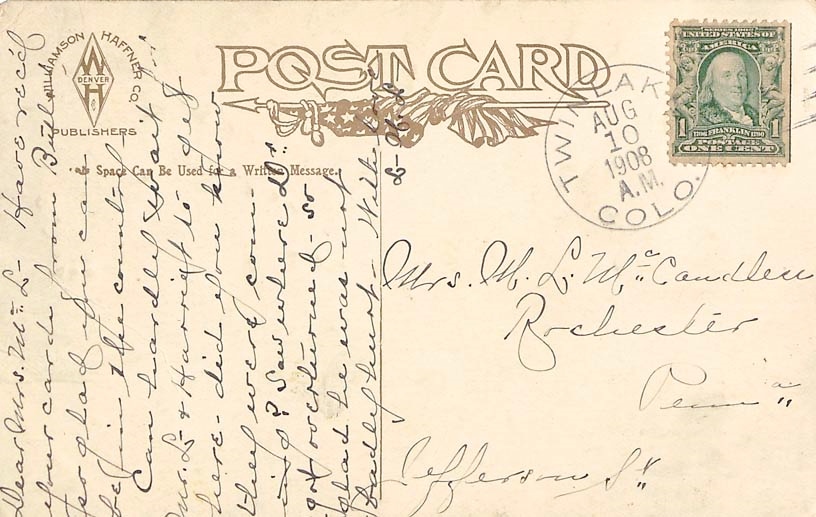 WILLIAMSON HAFFNER CO.
DENVER
W H
PUBLISHERS
POST CARD
Space Can Be Used for a Written Message.
SERIES 1902
UNITED STATES OF
AMERICA
1706 FRANKLIN 1790
1 POSTAGE 1
ONE CENT
TWIN LAKES
AUG
10
1908
A.M.
COLO.
Dear Mrs. Mc. L- Have rec'd
your cards from Butler
so glad you can
be in the country-
Can hardly wait for
Mrs. L- & Harriet to get
here- did you know
they were com-
ing? Saw where Dr.
got overturned- so
glad he was not
badly hurt- With love
Mrs. M. L. McCandless
Rochester
Penn"a"
Jefferson St